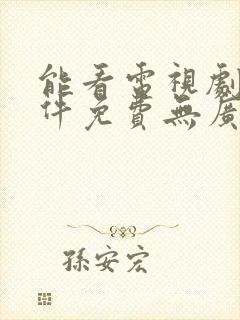 能看電視劇
件免費無廣
孫安宏